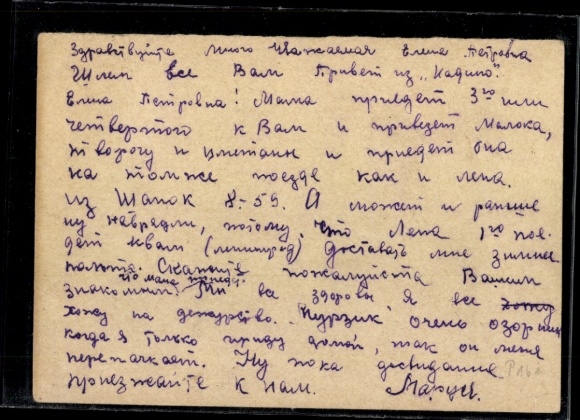 Здравствуйте много уважаемая Елена Петровна
Шлем все Вам привет из „Кадино".
Елена Петровна! Мама приедет 3го или
четвертого к Вам и привезет молока,
творогу и сметаны и приедет она
на том же поезде как и лена.
из Шапок 8-59. А может и раньше
ну наврядли, потому что Лена 1го пое-
дет к вам (ленинград) доставать мне зимнее
пальто. Скажите пожалуйста Вашим
что мама приедет
знакомым. Мы все здоровы я все
хожу на дежурство. Мурзик очень озорник
когда я только приду домой, так он меня
перепачкает. Ну пока досвидание
приезжайте к нам. Маруся.